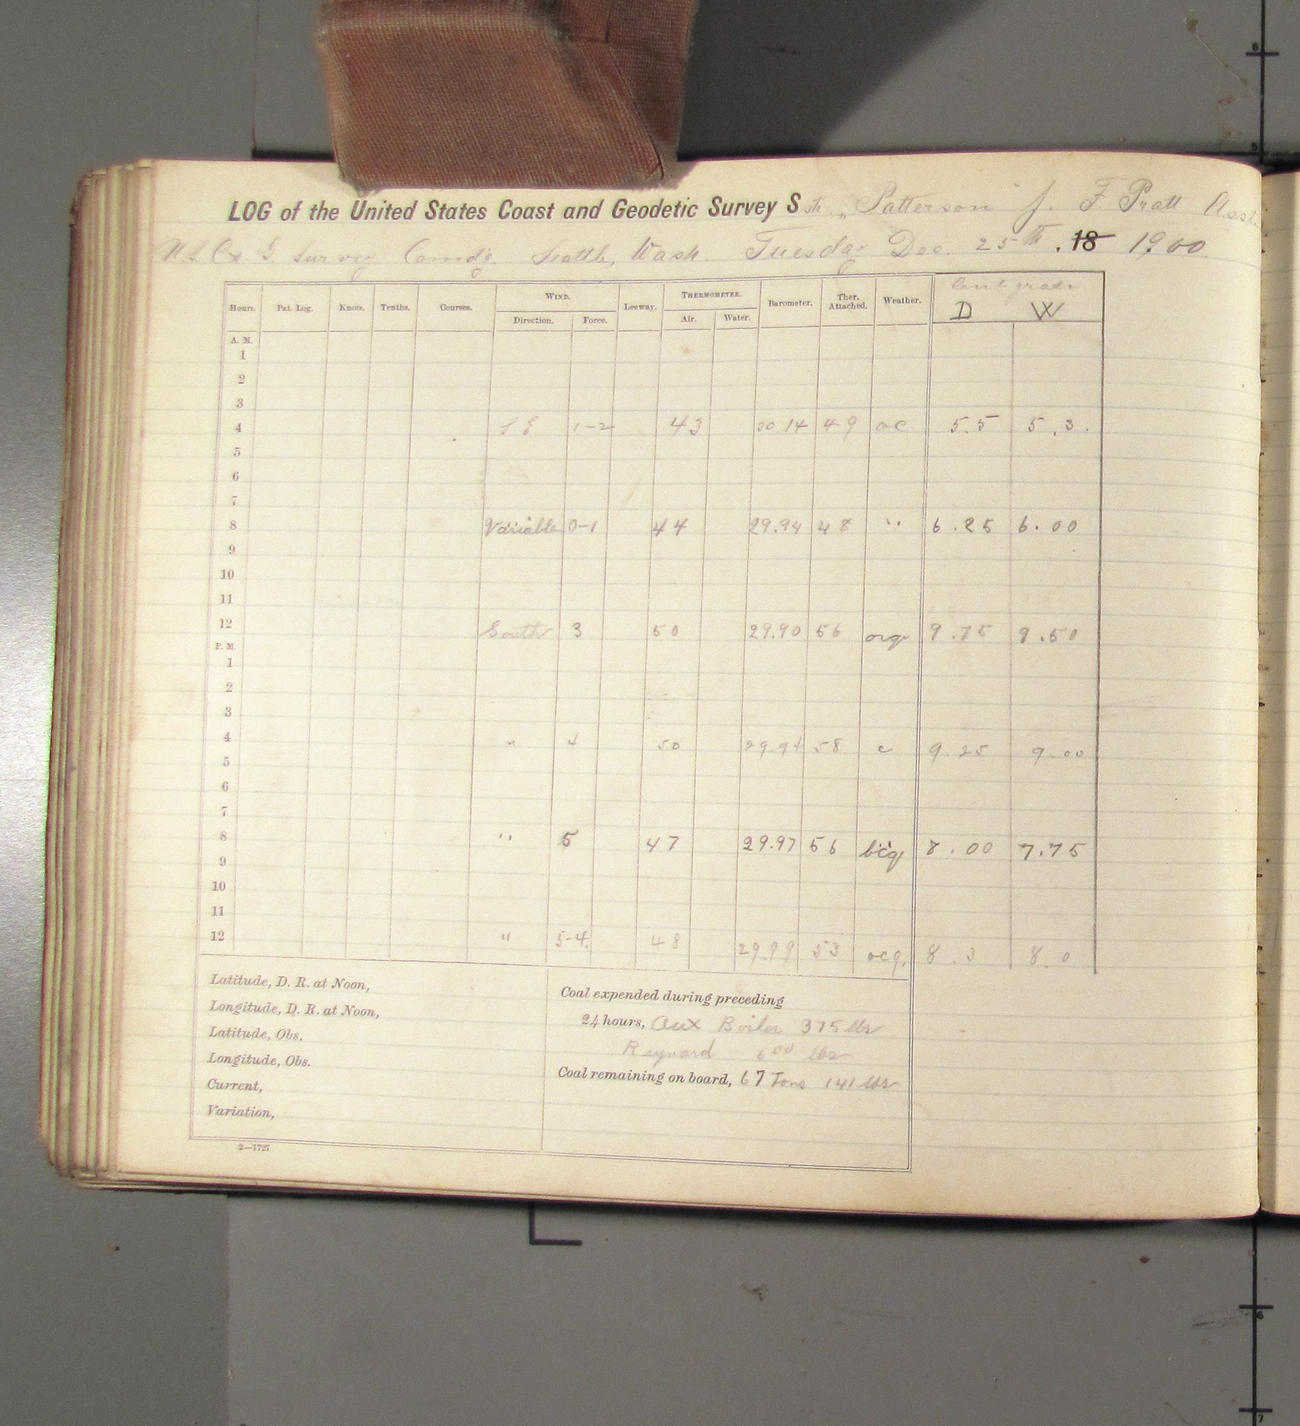 LOG of the United States Coast and Geodetic Survey Str. „ Patterson J. F. Pratt Asst.
U.S. C & G Survey Comdg. Seattle, Wash. Tuesday Dec. 25th. 18 1900.
Centigrade
Hours. Pat. Log. Knots. Tenths. Courses. WIND. Leeway. THERMOMETER. Barometer. Ther. Attached. Weather. D W
Direction. Force. Air. Water.
A. M.
1
2
3
4 S E 1-2 43 30.14 49 oc 5.5 5.3.
5
6
7
8 Variable 0-1 44 29.94 48 " 6.25 6.00
9
10
11
12 South 3 50 29.90 56 orq 9.75 9.50
P. M.
1
2
3
4 " 4 50 29.94 58 c 9.25 9.00
5
6
7
8 " 5 47 29.97 56 bcq 8.00 7.75
9
10
11
12 " 5-4. 48 29.99 53 ocq. 8.3 8.0
Latitude, D. R. at Noon,
Longitude, D. R. at Noon,
Latitude, Obs.
Longitude, Obs.
Current,
Variation,
Coal expended during preceding
24 hours, Aux Boiler 375 lbs
Reynard 600 lbs
Coal remaining on board, 67 Tons 141 lbs
2—1727
6
5
6
7